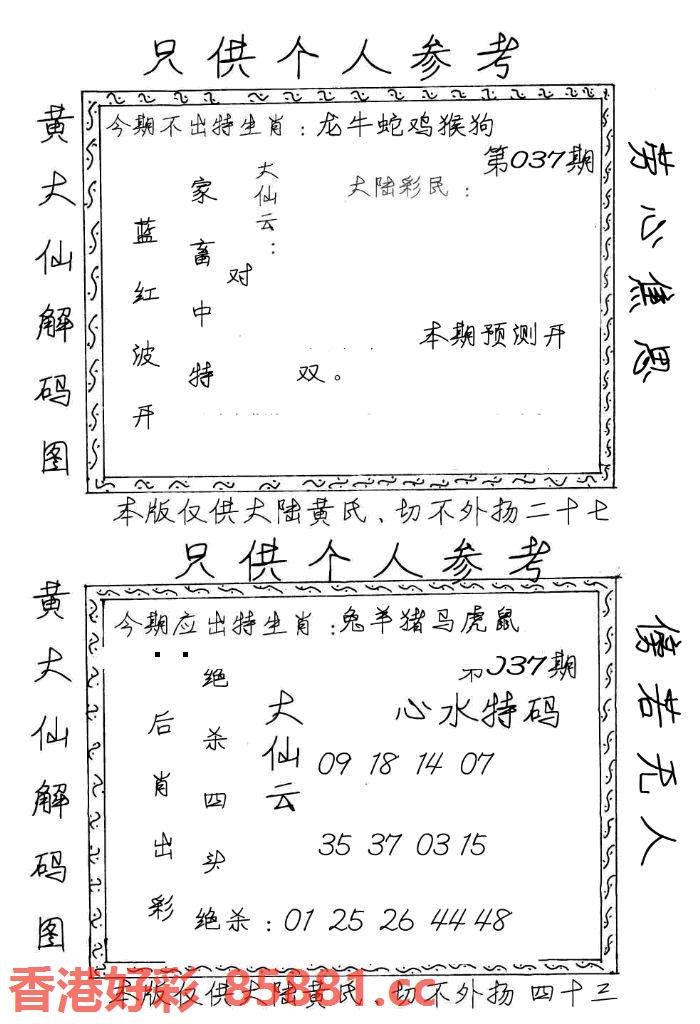 只供个人参考
黄大仙解码图
今期不出特生肖：龙牛蛇鸡猴狗
第037期
大陆彩民：
大仙云：
家畜中特
对
蓝红波开
双。
本期预测开
劳心焦思
本版仅供大陆黄氏、切不外扬二十七
只供个人参考
黄大仙解码图
今期应出特生肖：兔羊猪马虎鼠
037期
心水特码
大仙云
绝杀四头
后肖出彩
09 18 14 07
35 37 03 15
绝杀：01 25 26 44 48
傍若无人
本版仅供大陆黄氏、切不外扬 四十三
香港好彩 85881.cc